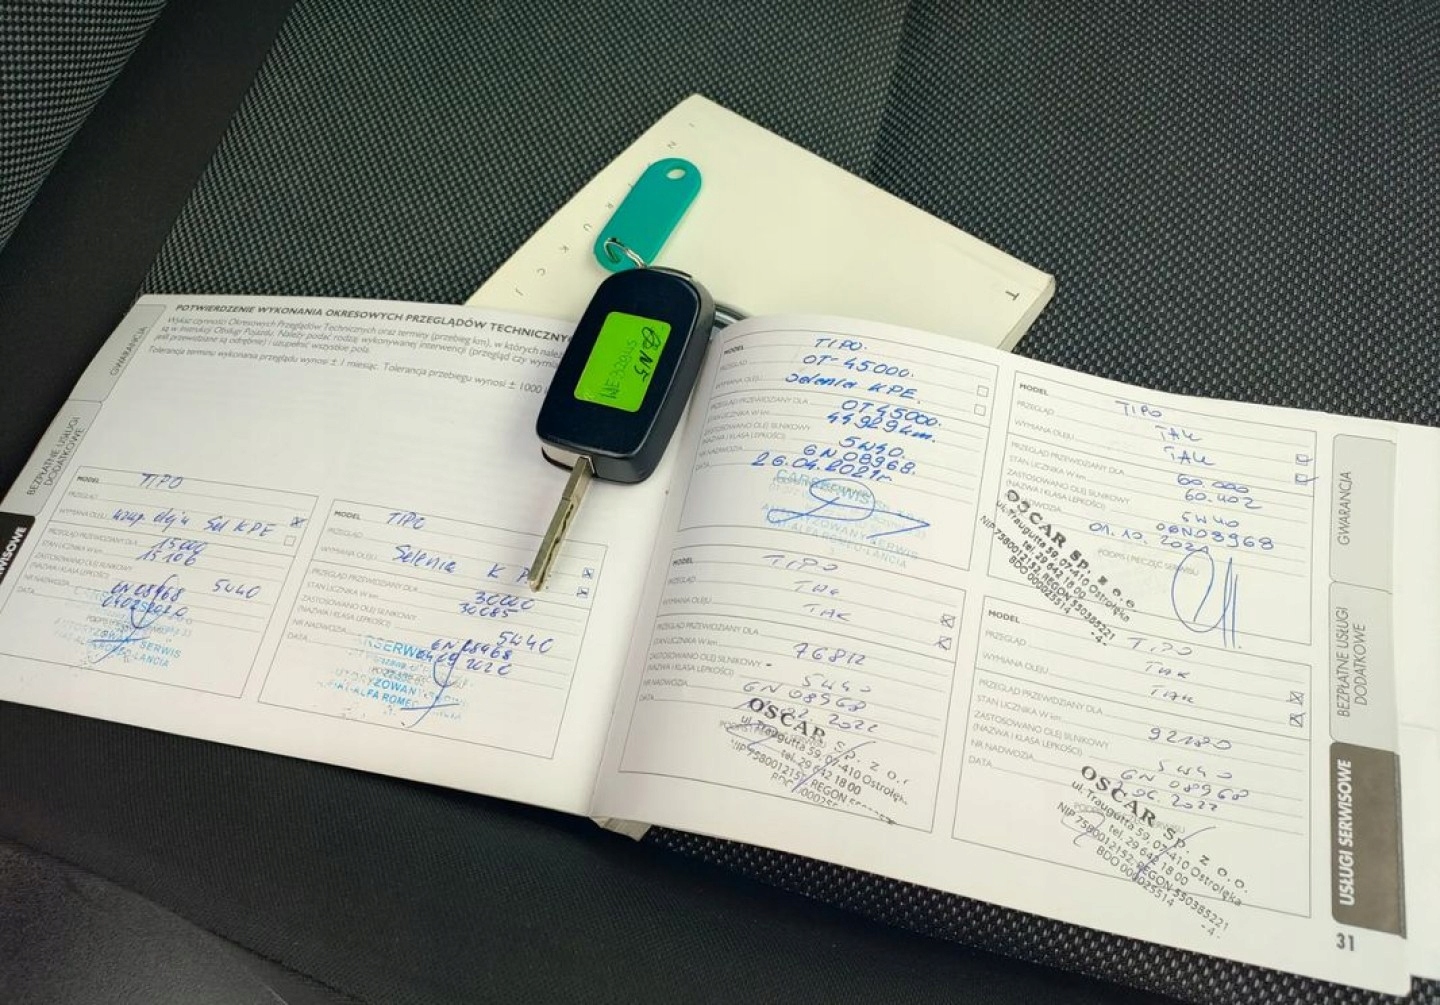 I N S T R U K C J
POTWIERDZENIE WYKONANIA OKRESOWYCH PRZEGLĄDÓW TECHNICZNY
Wykaz czynności Okresowych Przeglądów Technicznych oraz terminy (przebieg km), w których nale
są w Instrukcji Obsługi Pojazdu. Należy podać rodzaj wykonywanej interwencji (przegląd czy wymia
jeśli przewidziane są odrębnie) i uzupełnić wszystkie pola.
Tolerancja terminu wykonania przeglądu wynosi ± 1 miesiąc. Tolerancja przebiegu wynosi ± 1000
GWARANCJA
BEZPŁATNE USŁUGI
DODATKOWE
WISOWE
MODEL TIPO
PRZEGLĄD
WYMIANA OLEJU Sel KPE
PRZEGLĄD PRZEWIDZIANY DLA 15000
STAN LICZNIKA W km 15106
ZASTOSOWANO OLEJ SILNIKOWY 5W40
(NAZWA I KLASA LEPKOŚCI)
NR NADWOZIA 6N08968
DATA
AUTORYZOWANY SERWIS
FIAT-ALFA ROMEO-LANCIA
MODEL TIPO
PRZEGLĄD
WYMIANA OLEJU Selenia K P
PRZEGLĄD PRZEWIDZIANY DLA 30000
STAN LICZNIKA W km 30085
ZASTOSOWANO OLEJ SILNIKOWY 5W40
(NAZWA I KLASA LEPKOŚCI)
NR NADWOZIA 6N08968
DATA
CARSERW
MODEL TIPO.
PRZEGLĄD OT-45000.
WYMIANA OLEJU Selenia KPE.
PRZEGLĄD PRZEWIDZIANY DLA OT45000.
STAN LICZNIKA W km 44929km.
ZASTOSOWANO OLEJ SILNIKOWY 5W40.
(NAZWA I KLASA LEPKOŚCI)
NR NADWOZIA 6N08968.
DATA 26.04.2021r
CARSERWIS
AUTORYZOWANY SERWIS
FIAT-ALFA ROMEO-LANCIA
MODEL TIPO
PRZEGLĄD TAK
WYMIANA OLEJU TAK
PRZEGLĄD PRZEWIDZIANY DLA 60.000
STAN LICZNIKA W km 60.402
ZASTOSOWANO OLEJ SILNIKOWY 5W40
(NAZWA I KLASA LEPKOŚCI)
NR NADWOZIA 6N08968
DATA 01.10.2021
PODPIS I PIECZĘĆ SERWISU
OSCAR Sp. z o.o.
ul. Traugutta 59, 07-410 Ostrołęka
tel. 29 642 18 00
NIP 7580012152, REGON 550385221
BDO 000025514
-4-
MODEL TIPO
PRZEGLĄD TAK
WYMIANA OLEJU TAK
PRZEGLĄD PRZEWIDZIANY DLA
STAN LICZNIKA W km 76812
ZASTOSOWANO OLEJ SILNIKOWY 5W40
(NAZWA I KLASA LEPKOŚCI)
NR NADWOZIA 6N08968
DATA
OSCAR Sp. z o.o.
ul. Traugutta 59, 07-410 Ostrołęk
tel. 29 642 18 00
NIP 7580012152 REGON
MODEL TIPO
PRZEGLĄD TAK
WYMIANA OLEJU TAK
PRZEGLĄD PRZEWIDZIANY DLA
STAN LICZNIKA W km 92180
ZASTOSOWANO OLEJ SILNIKOWY 5W40
(NAZWA I KLASA LEPKOŚCI)
NR NADWOZIA 6N08968
DATA
OSCAR Sp. z o.o.
ul. Traugutta 59, 07-410 Ostrołęka
tel. 29 642 18 00
NIP 7580012152, REGON 550385221
BDO 000025514
-4-
GWARANCJA
BEZPŁATNE USŁUGI
DODATKOWE
USŁUGI SERWISOWE
31